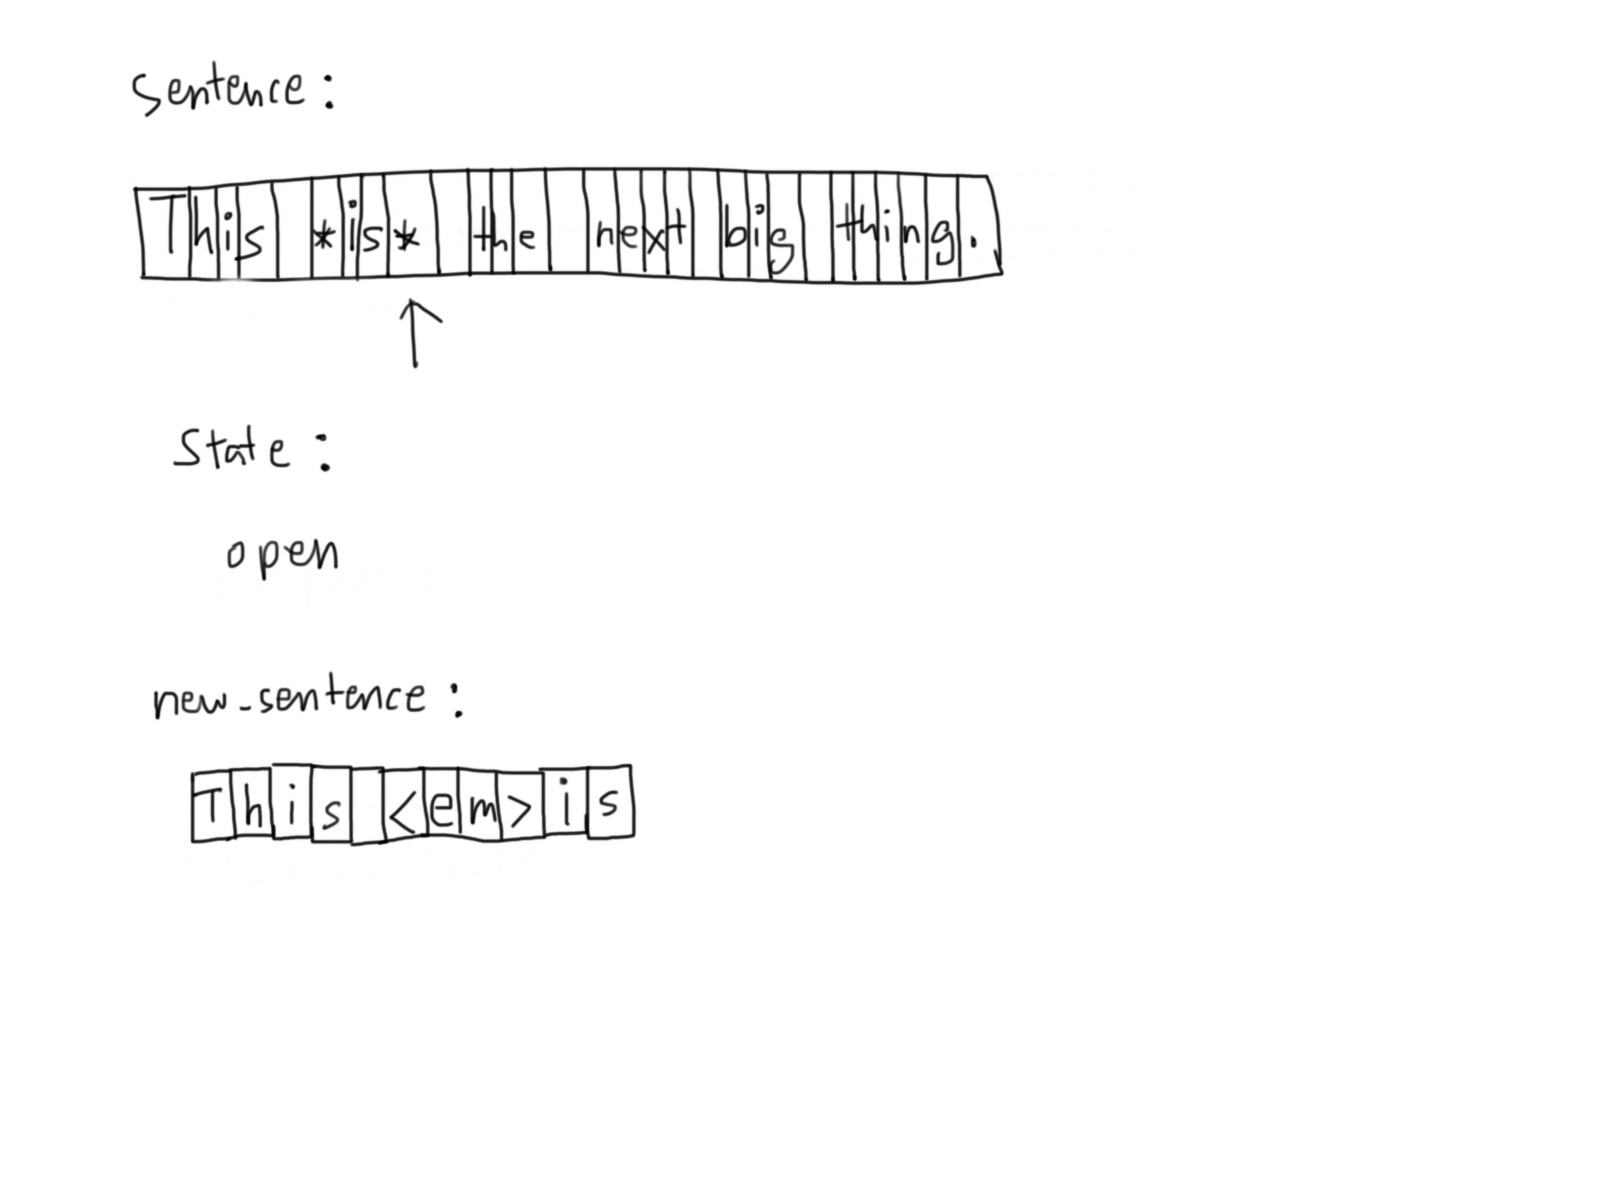 Sentence:
This *is* the next big thing.
State:
open
new_sentence:
This <em>is